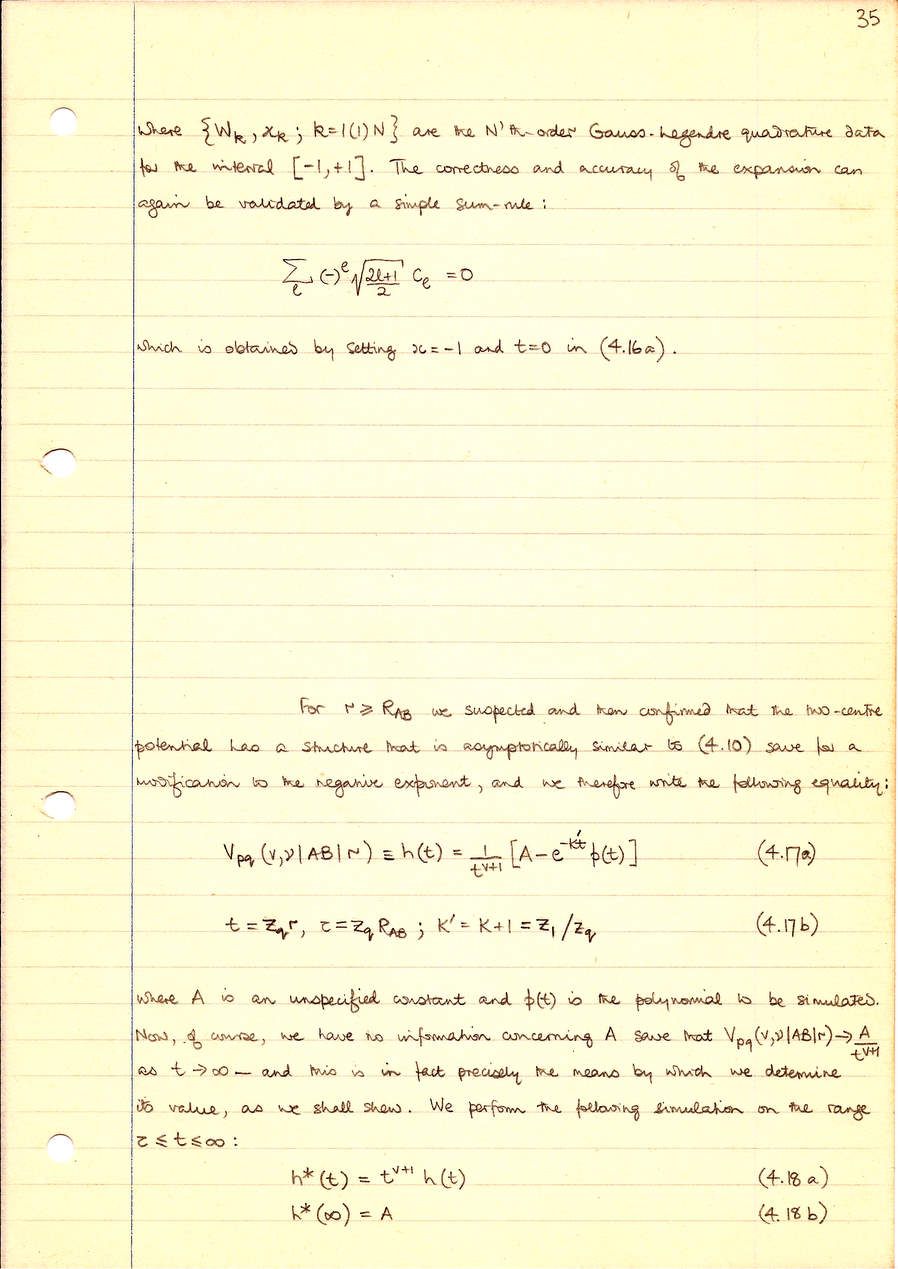 35
where {W_k, x_k ; k=1(1)N} are the N'th-order Gauss-Legendre quadrature data
for the interval [-1,+1]. The correctness and accuracy of the expansion can
again be validated by a simple sum-rule :
∑_ℓ (-)^ℓ √((2ℓ+1)/2) C_ℓ = 0
which is obtained by setting x=-1 and t=0 in (4.16a).
For r ≥ R_AB we suspected and then confirmed that the two-centre
potential has a structure that is asymptotically similar to (4.10) save for a
modification to the negative exponent, and we therefore write the following equality:
V_pq (v,ν|AB|r) ≡ h(t) = 1/t^(v+1) [A - e^(-K't) φ(t)] (4.17a)
t = z_q r, τ = z_q R_AB ; K' = K+1 = z_1/z_q (4.17b)
where A is an unspecified constant and φ(t) is the polynomial to be simulated.
Now, of course, we have no information concerning A save that V_pq(v,ν|AB|r) → A/t^(v+1)
as t → ∞ — and this is in fact precisely the means by which we determine
its value, as we shall shew. We perform the following simulation on the range
τ ≤ t ≤ ∞ :
h*(t) = t^(v+1) h(t) (4.18 a)
h*(∞) = A (4.18 b)